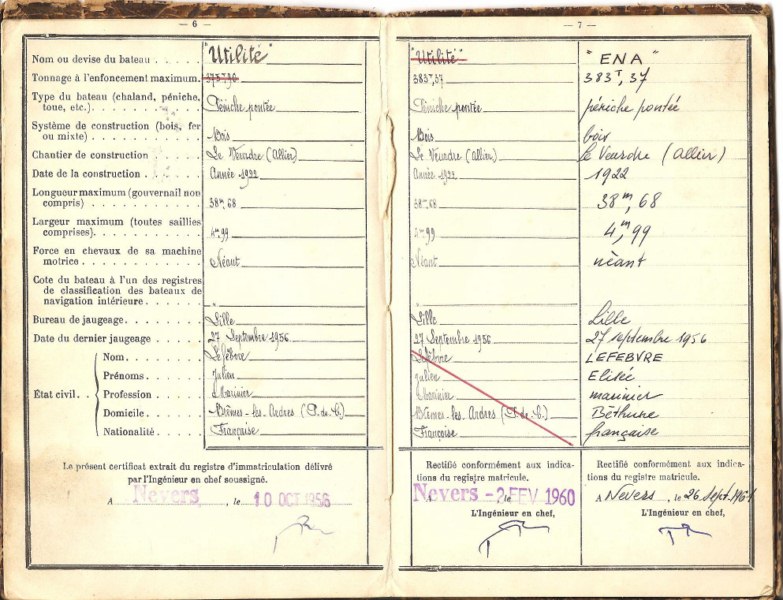 — 6 —
Nom ou devise du bateau . . . . . "Utilité"
Tonnage à l'enfoncement maximum.
Type du bateau (chaland, péniche,
toue, etc.) . . . . . . . . . . Péniche pontée
Système de construction (bois, fer
ou mixte) . . . . . . . . . . Bois
Chantier de construction . . . . . Le Veurdre (Allier)
Date de la construction . . . . . . Année 1922
Longueur maximum (gouvernail non
compris) . . . . . . . . . . . 38m,68
Largeur maximum (toutes saillies
comprises). . . . . . . . . . . 4m,99
Force en chevaux de sa machine
motrice . . . . . . . . . . . . Néant
Cote du bateau à l'un des registres
de classification des bateaux de
navigation intérieure . . . . . . "
Bureau de jaugeage . . . . . . . Lille
Date du dernier jaugeage . . . . . 27 Septembre 1956
État civil . .
Nom . . . . . . . Lefèbvre
Prénoms . . . . . Julien
Profession . . . . Marinier
Domicile . . . . . Brêmes-les-Ardres (P.de.C.)
Nationalité . . . . Française
Le présent certificat extrait du registre d'immatriculation délivré
par l'Ingénieur en chef soussigné.
A Nevers , le 10 OCT 1956
— 7 —
"Utilité"
383T,37
Péniche pontée
Bois
Le Veurdre (Allier)
Année 1922
38m,68
4m,99
Néant
"
Lille
27 Septembre 1956
Lefèbvre
Julien
Marinier
Brêmes-les-Ardres (P.de.C.)
Française
Rectifié conformément aux indica-
tions du registre matricule.
Nevers - 2 FEV 1960
L'Ingénieur en chef,
"ENA"
383T,37
péniche pontée
bois
le Veurdre (Allier)
1922
38m,68
4m,99
néant
Lille
27 septembre 1956
LEFEBVRE
Elisée
marinier
Béthune
française
Rectifié conformément aux indica-
tions du registre matricule.
A Nevers , le 26 Sept.
L'Ingénieur en chef,